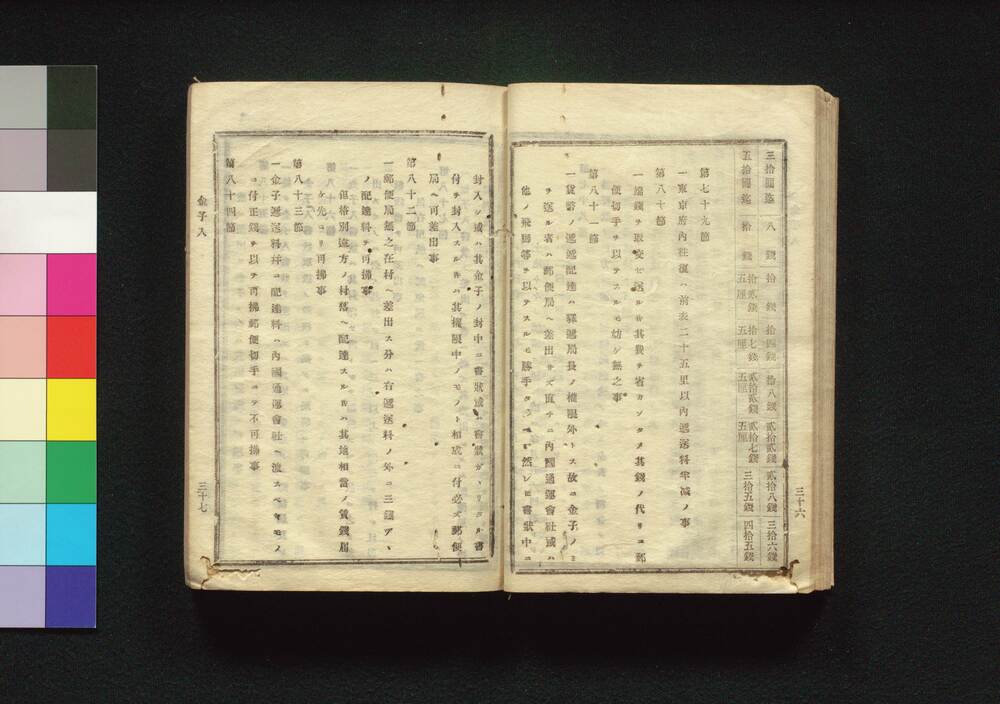 三拾圓迄 八錢 拾錢 拾四錢 拾八錢 貳拾貳錢 貳拾八錢 三拾六錢
五拾圓迄 拾錢 拾貳錢五厘 拾七錢五厘 貳拾貳錢五厘 貳拾七錢五厘 三拾五錢 四拾五錢
第七十九節
一東京府內往復ハ前表二十五里以內遞送料半減ノ事
第八十節
一遠錢ヲ取交セ送ルキ其費ヲ省カンタメ其錢ノ代リニ郵
便切手ヲ以テスルモ妨ケ無之事
第八十一節
一貨幣ノ遞送配達ハ驛遞局長ノ權限外トス故ニ金子ノミ
ヲ送ル者ハ郵便局ヘ差出サス直チニ內國通運會社或ハ
他ノ飛脚等ヲ以テスルモ勝手タランヘシ然レヒ書狀中ニ
三十六
封入シ或ハ其金子ノ封中ニ書狀或ハ書狀ガマシキ書
付ヲ封入スルキハ其權限中ノモノト相成ニ付必ス郵便
局ヘ可差出事
第八十二節
一郵便局無之在村ヘ差出ス分ハ右遞送料ノ外ニ三錢アヽ
ノ配達料ヲ可拂事
但格別遠方ノ村落ヘ配達スルキハ其地相當ノ賃錢屆
ケ先ヨリ可拂事
第八十三節
一金子遞送料幷ニ配達料ハ內國通運會社ヘ渡スヘキモノ
ニ付正錢ヲ以テ可拂郵便切手ニテ不可拂事
第八十四節
金子入
三十七